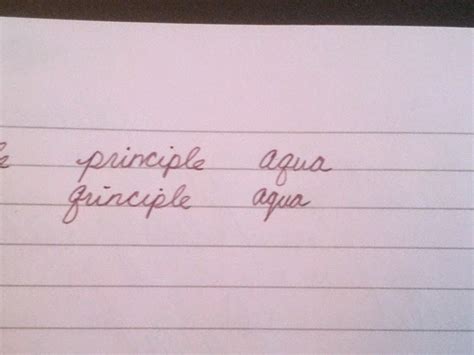 principle aqua
principle aqua